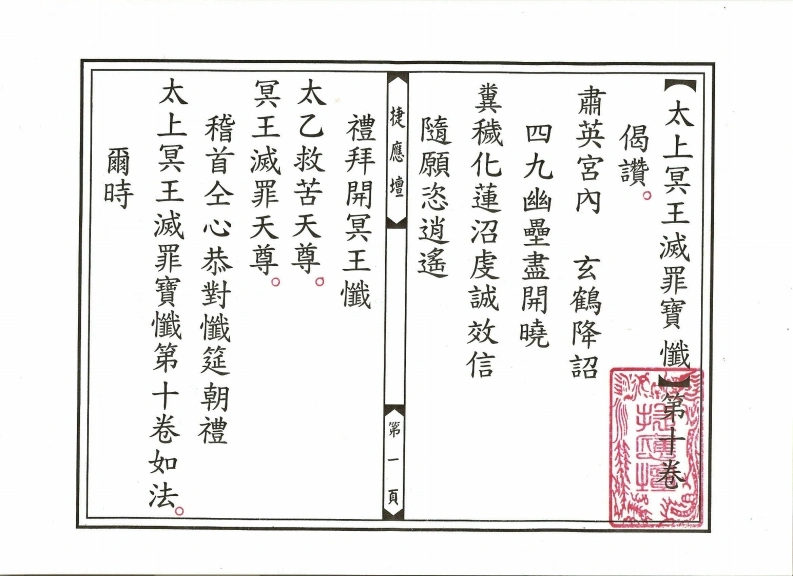 【太上冥王滅罪寶懺】第十卷
偈讚。
肅英宮內　玄鶴降詔
四九幽壘盡開曉
糞穢化蓮沼虔誠效信
隨願恣逍遙
捷應壇
第一頁
禮拜開冥王懺
太乙救苦天尊。
冥王滅罪天尊。
稽首仝心恭對懺筵朝禮
太上冥王滅罪寶懺第十卷如法。
爾時